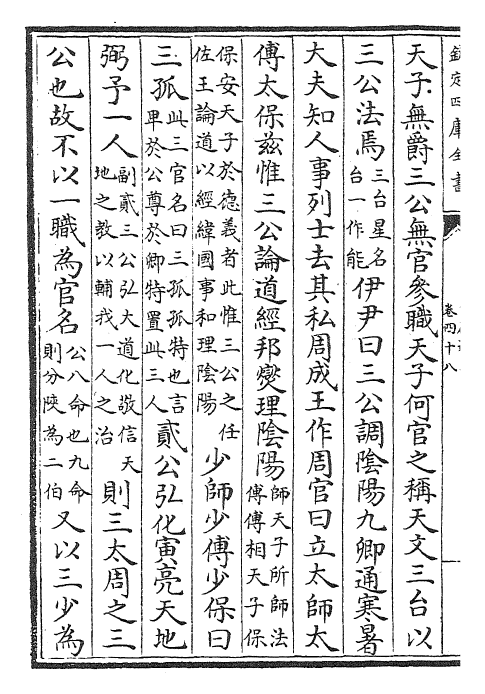 欽定四庫全書
卷四十八
天子無爵三公無官參職天子何官之稱天文三台以
三公法焉三台星名台一作能伊尹曰三公調隂陽九卿通寒暑
大夫知人事列士去其私周成王作周官曰立太師太
傅太保兹惟三公論道經邦燮理隂陽師天子所師法傅傅相天子保
保安天子於德義者此惟三公之任佐王論道以經緯國事和理隂陽少師少傅少保曰
三孤此三官名曰三孤孤特也言卑於公尊於卿特置此三人貳公弘化寅亮天地
弼予一人副貳三公弘大道化敬信天地之教以輔我一人之治則三太周之三
公也故不以一職為官名公八命也九命則分陜為二伯又以三少為